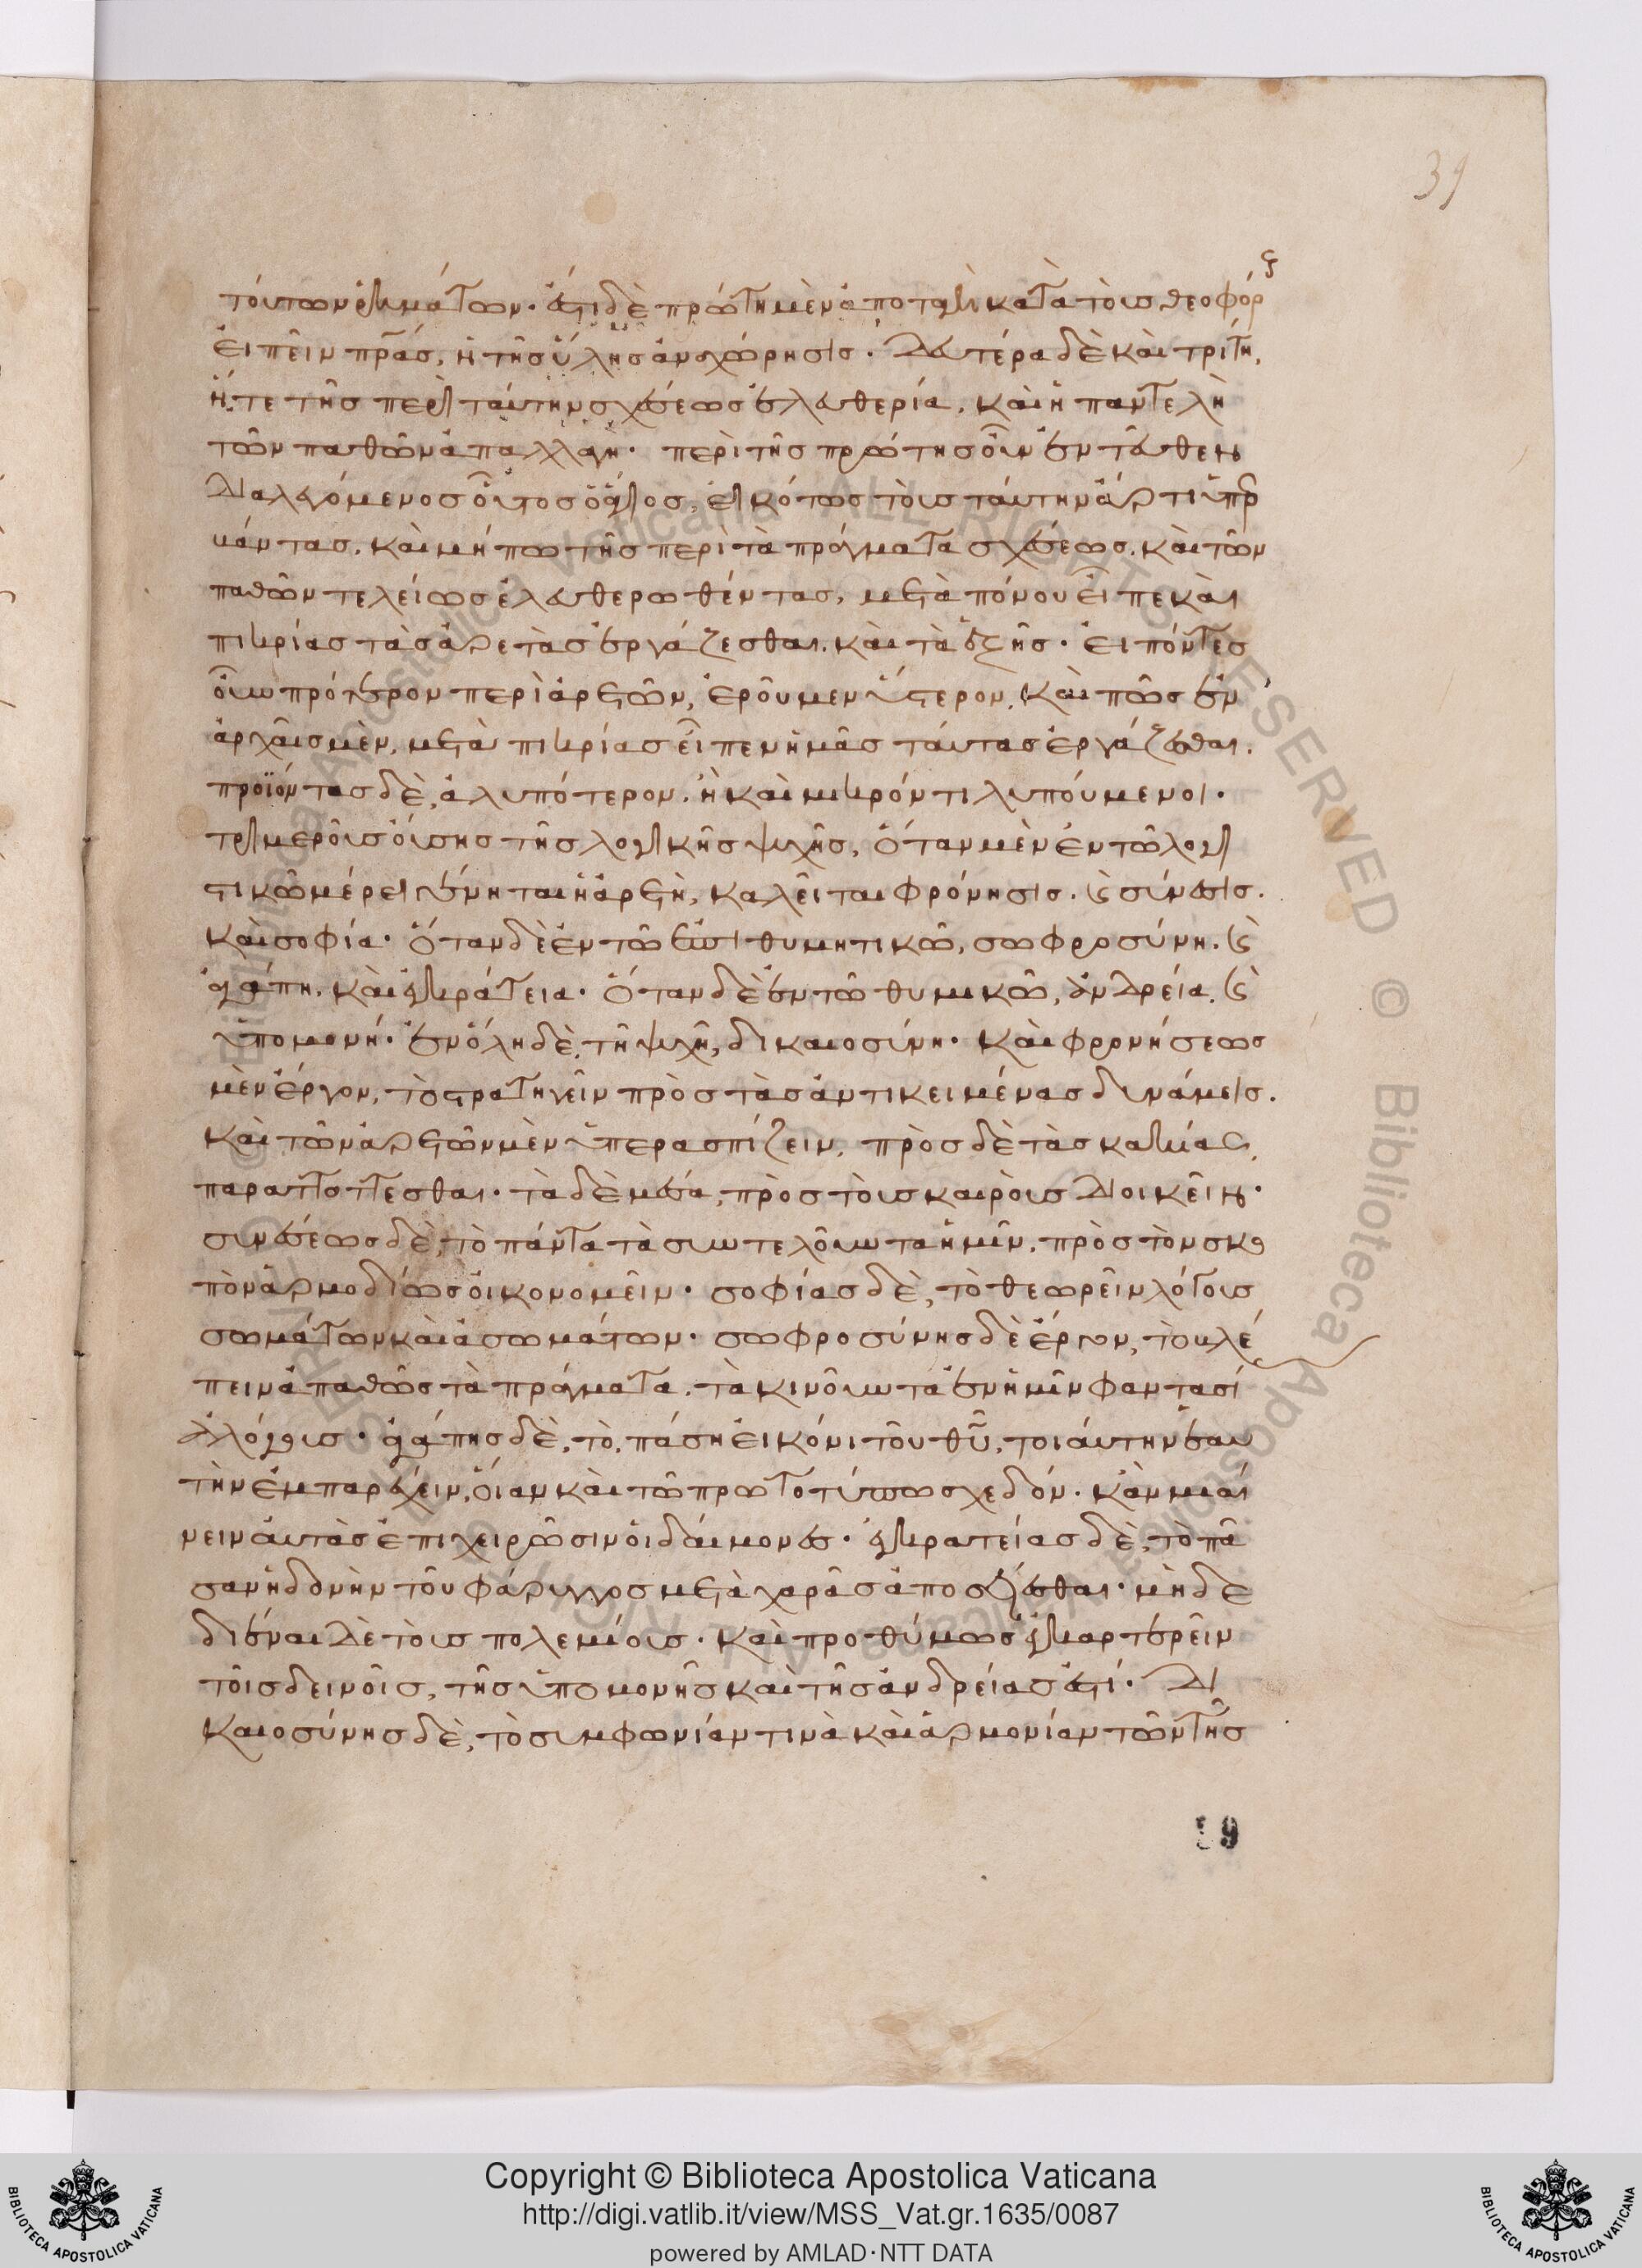 39
τούτων ῥημάτων. ἔστι δὲ πρώτη μὲν ἀποταγὴ κατὰ τοὺς θεοφόρ
εἰπεῖν πρ̅άς, ἡ τῆς ὕλης ἀναχώρησις. Δευτέρα δὲ καὶ τρίτη,
ἥ τε τῆς περὶ ταύτην σχέσεως ἐλευθερία, καὶ ἡ παντελὴ
τῶν παθῶν ἀπαλλαγή. περὶ τῆς πρώτης οὖν ἐνταῦθεν
Διαλεγόμενος οὗτος ὁ ἅγιος, εἰκότως τοὺς ταύτην ἄρτι ὑπερ
μάντας, καὶ μήπω τῆς περὶ τὰ πράγματα σχέσεως, καὶ τῶν
παθῶν τελείως ἐλευθερωθέντας, μετὰ πόνου εἶπε καὶ
πικρίας τὰς ἀρετὰς ἐργάζεσθαι. καὶ τὰ ἑξῆς. εἰπόντες
οὖν πρότερον περὶ ἀρετῶν, ἐροῦμεν ὕστερον, καὶ πῶς ἐν
ἀρχαῖς μὲν, μετὰ πικρίας εἶπεν ἡμᾶς ταύτας ἐργάζεσθαι.
προϊόντας δὲ, ἀλυπότερον, ἢ καὶ μικρόν τι λυπούμενοι.
τριμεροῦς οὔσης τῆς λογικῆς ψυχῆς, ὅταν μὲν ἐν τῷ λογι
στικῷ μέρει γένηται ἡ ἀρετὴ, καλεῖται φρόνησις. ϗ σύνεσις.
καὶ σοφία. ὅταν δὲ ἐν τῷ ἐπιθυμητικῷ, σωφροσύνη. ϗ
ἀγάπη. καὶ ἐγκράτεια. ὅταν δὲ ἐν τῷ θυμικῷ, ἀνδρεία. ϗ
ὑπομονή. ἐν ὅλῃ δὲ τῇ ψυχῇ, δικαιοσύνη. καὶ φρονήσεως
μὲν ἔργον, τὸ στρατηγεῖν πρὸς τὰς ἀντικειμένας δυνάμεις.
καὶ τῶν ἀρετῶν μὲν ὑπερασπίζειν, πρὸς δὲ τὰς κακίας,
παρατάττεσθαι. τὰ δὲ μέσα, πρὸς τοὺς καιροὺς διοικεῖν.
συνέσεως δὲ, τὸ πάντα τὰ συντελοῦντα ἡμῖν, πρὸς τὸν σκο
πὸν ἁρμοδίως οἰκονομεῖν. σοφίας δὲ, τὸ θεωρεῖν λόγους
σωμάτων καὶ ἀσωμάτων. σωφροσύνης δὲ ἔργον, τὸ βλέ
πειν ἀπαθῶς τὰ πράγματα, τὰ κινοῦντα ἐν ἡμῖν φαντασί
ἀλόγους. ἀγάπης δὲ, τὸ πάσῃ εἰκόνι τοῦ θ̅υ̅, τοιαύτην ἑαυ
τὴν ἐμπαρέχειν, οἵαν καὶ τῷ πρωτοτύπῳ σχεδόν. κἂν μιαί
νειν αὐτὰς ἐπιχειρῶσιν οἱ δαίμονες. ἐγκρατείας δὲ, τὸ πᾶ
σαν ἡδονὴν τοῦ φάρυγγος μετὰ χαρᾶς ἀποσείεσθαι. μὴ δε
διέναι δὲ τοὺς πολεμίους. καὶ προθύμως ἐγκαρτερεῖν
τοῖς δεινοῖς, τῆς ὑπομονῆς καὶ τῆς ἀνδρείας ἐστί. Δι
καιοσύνης δὲ, τὸ συμφωνίαν τινὰ καὶ ἁρμονίαν τῶν τῆς
39
Copyright © Biblioteca Apostolica Vaticana
http://digi.vatlib.it/view/MSS_Vat.gr.1635/0087
powered by AMLAD·NTT DATA
BIBLIOTECA APOSTOLICA VATICANA
BIBLIOTECA APOSTOLICA VATICANA